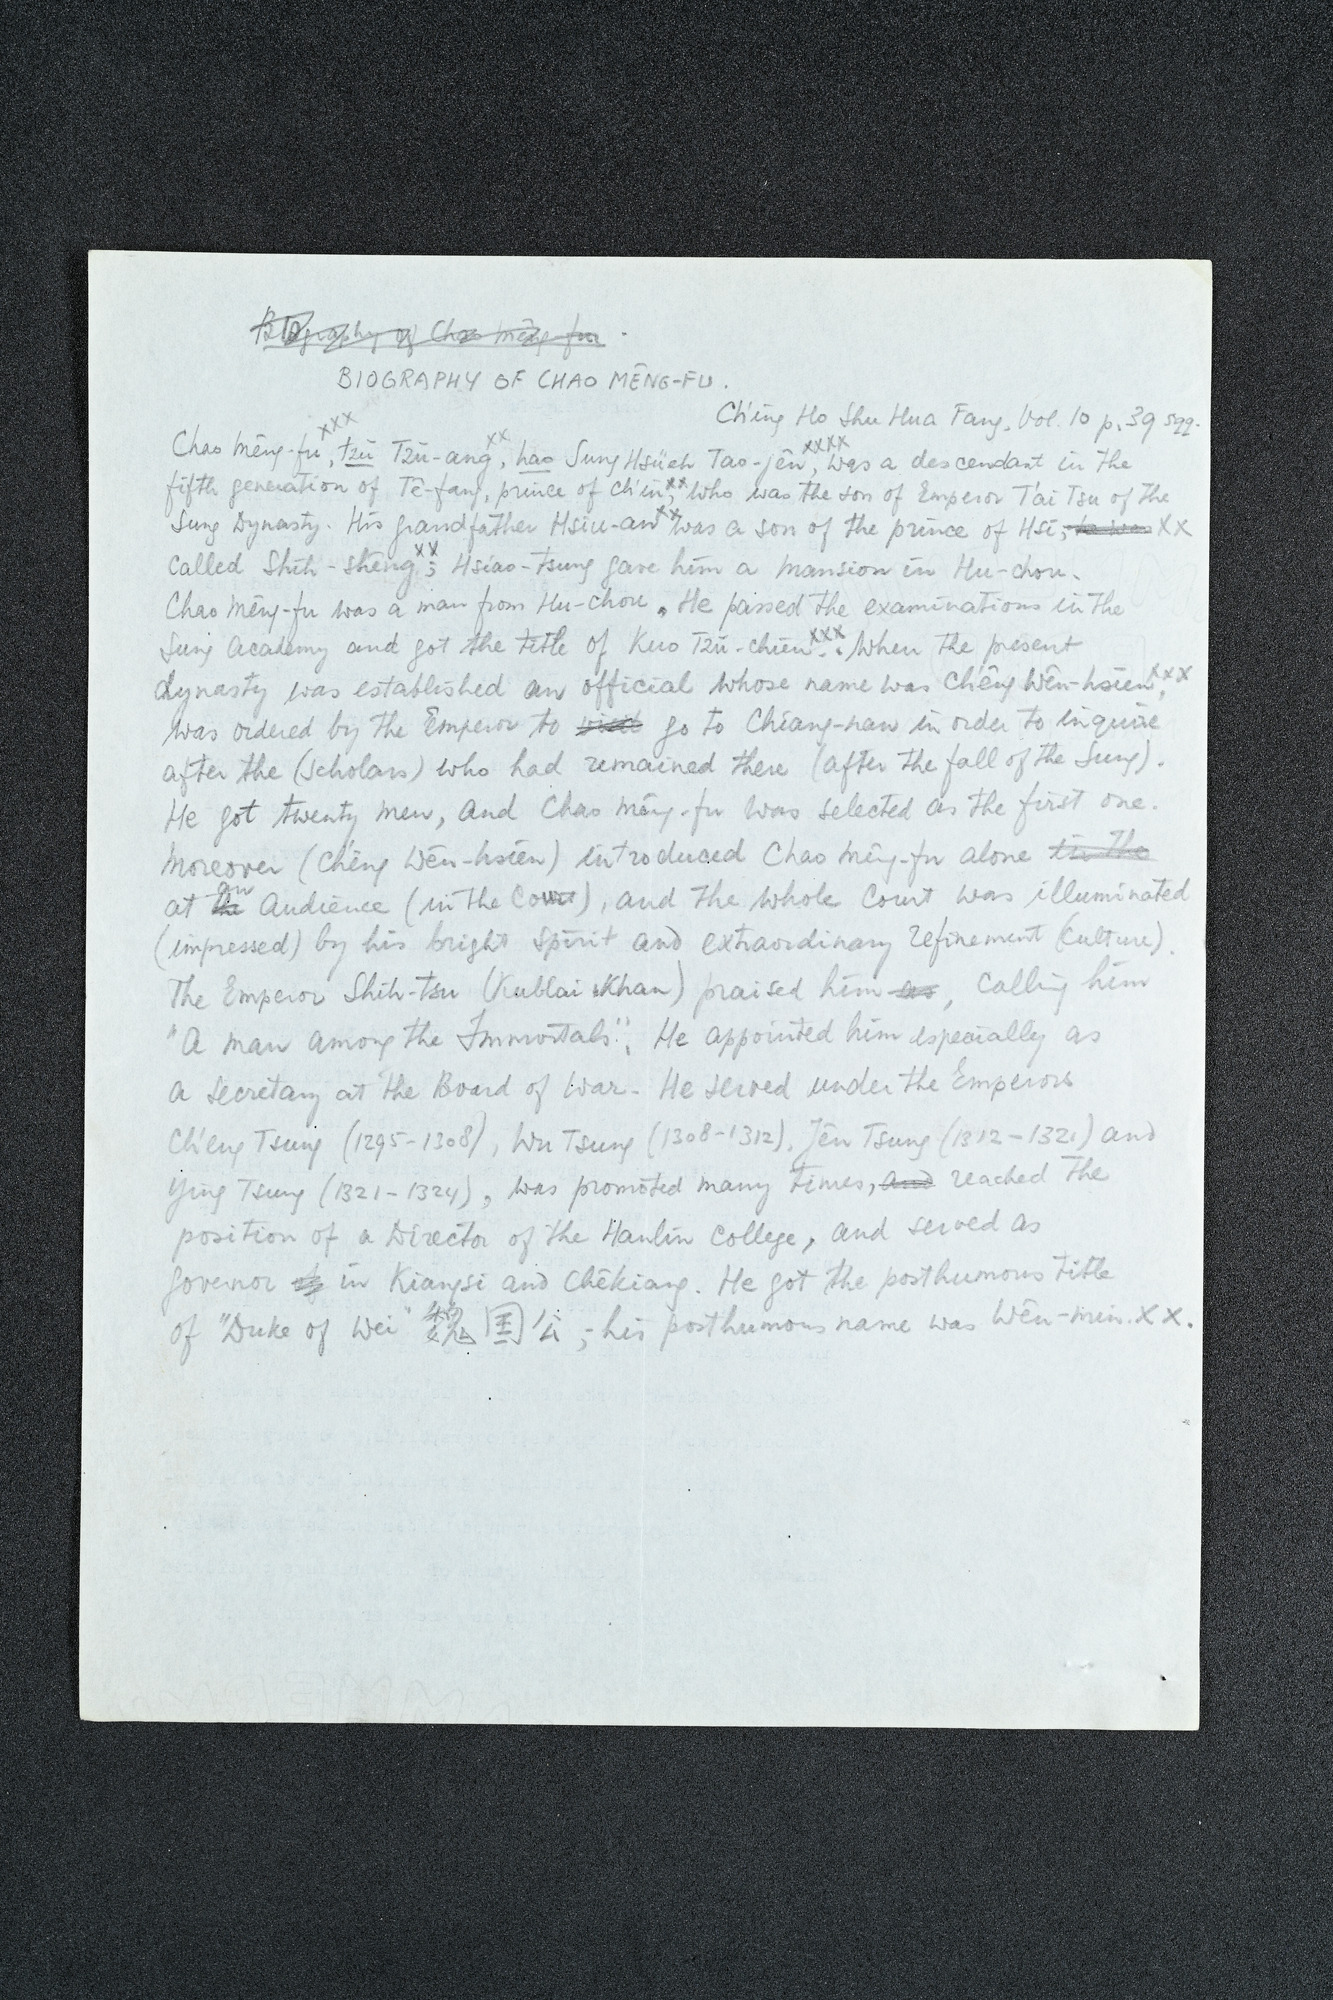 Biography of Chao Mêng-fu.
BIOGRAPHY OF CHAO MÊNG-FU.
Ch'ing Ho Shu Hua Fang, Vol. 10 p. 39 sqq.
Chao Mêng-fu xxx, tzŭ Tzŭ-ang xx, hao Sung Hsüeh Tao-jên xxxx, was a descendant in the
fifth generation of Tê-fang, prince of Ch'in xx, who was the son of Emperor T'ai Tsu of the
Sung Dynasty. His grandfather Hsiu-an xx was a son of the prince of Hsi, xx
called Shih-shêng xx; Hsiao-tsung gave him a mansion in Hu-chou.
Chao Mêng-fu was a man from Hu-chou. He passed the examinations in the
Sung Academy and got the title of Kuo Tzŭ-chien xxx. When the present
dynasty was established an official whose name was Ch'êng Wên-hsien xxx,
was ordered by the Emperor to visit go to Chiang-nan in order to inquire
after the (scholars) who had remained there (after the fall of the Sung).
He got twenty men, and Chao Mêng-fu was selected as the first one.
Moreover (Ch'êng Wên-hsien) introduced Chao Mêng-fu alone in the
at the an Audience (in the Court), and the whole Court was illuminated
(impressed) by his bright spirit and extraordinary refinement (culture).
The Emperor Shih-tsu (Kublai Khan) praised him as, calling him
"A man among the Immortals". He appointed him especially as
a secretary at the Board of War. He served under the Emperors
Ch'êng Tsung (1295-1308), Wu Tsung (1308-1312), Jên Tsung (1312-1321) and
Ying Tsung (1321-1324), was promoted many times, and reached the
position of a Director of the Hanlin College, and served as
governor of in Kiangsi and Chêkiang. He got the posthumous title
of "Duke of Wei" 魏国公; his posthumous name was Wên-min xx.